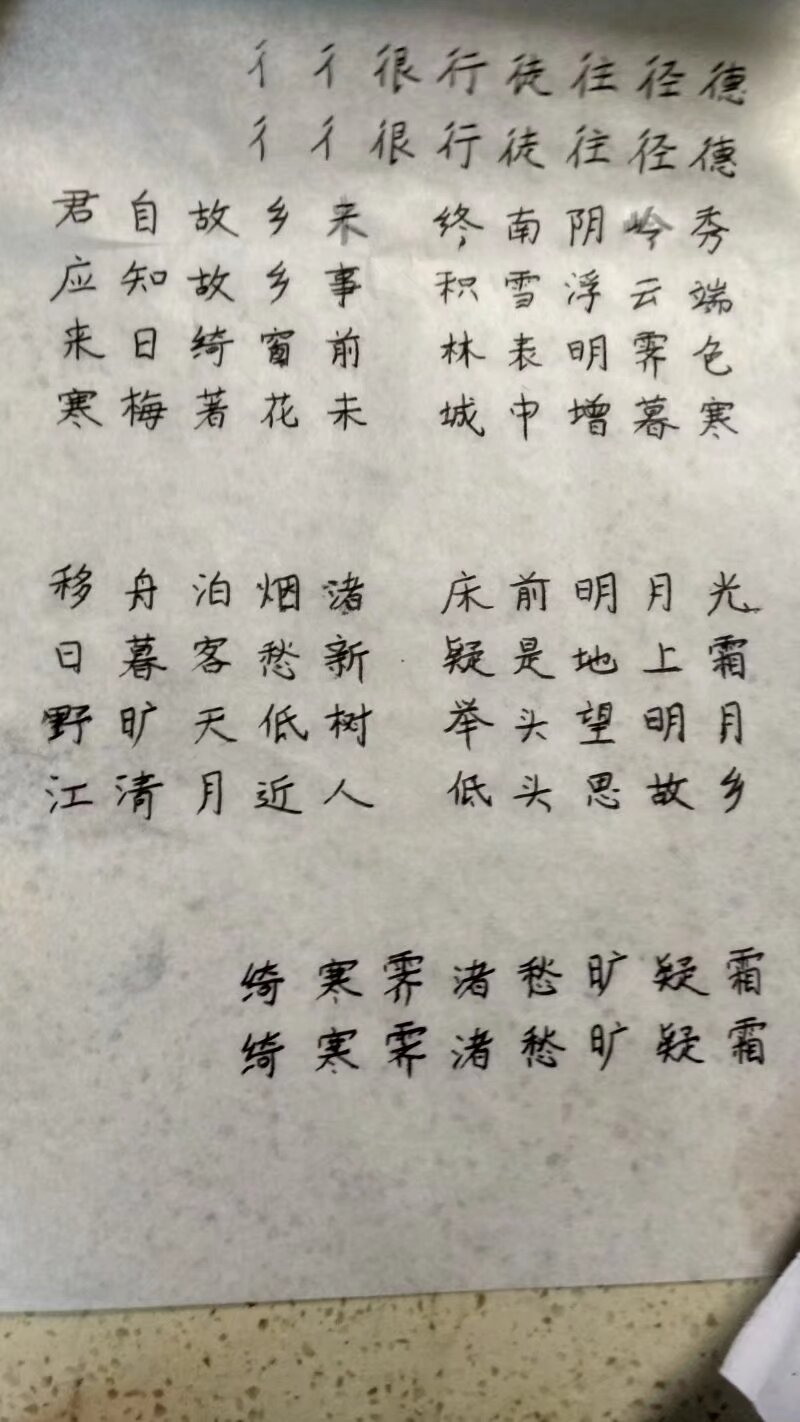 彳 彳 很 行 徒 往 径 德
彳 彳 很 行 徒 往 径 德
君 自 故 乡 来
应 知 故 乡 事
来 日 绮 窗 前
寒 梅 著 花 未
终 南 阴 岭 秀
积 雪 浮 云 端
林 表 明 霁 色
城 中 增 暮 寒
移 舟 泊 烟 渚
日 暮 客 愁 新
野 旷 天 低 树
江 清 月 近 人
床 前 明 月 光
疑 是 地 上 霜
举 头 望 明 月
低 头 思 故 乡
绮 寒 霁 渚 愁 旷 疑 霜
绮 寒 霁 渚 愁 旷 疑 霜